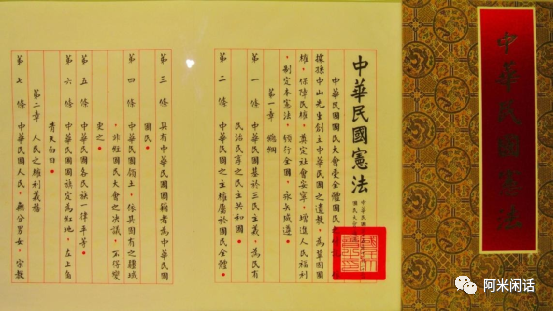 中華民國憲法
中華民國憲法
中華民國國民大會受全體國民
據孫中山先生創立中華民國之遺教，為鞏固國
權，保障民權，奠定社會安寧，增進人民福利
，制定本憲法，頒行全國，永矢咸遵。
第一章 總綱
第一條 中華民國基於三民主義，為民有
民治民享之民主共和國。
第二條 中華民國之主權屬於國民全體。
第三條 具有中華民國國籍者為中華民國
國民。
第四條 中華民國領土，依其固有之疆域
，非經國民大會之決議，不得變
更之。
第五條 中華民國各民族一律平等。
第六條 中華民國國旗定為紅地，左上角
青天白日。
第二章 人民之權利義務
第七條 中華民國人民，無分男女，宗教
阿米闲话